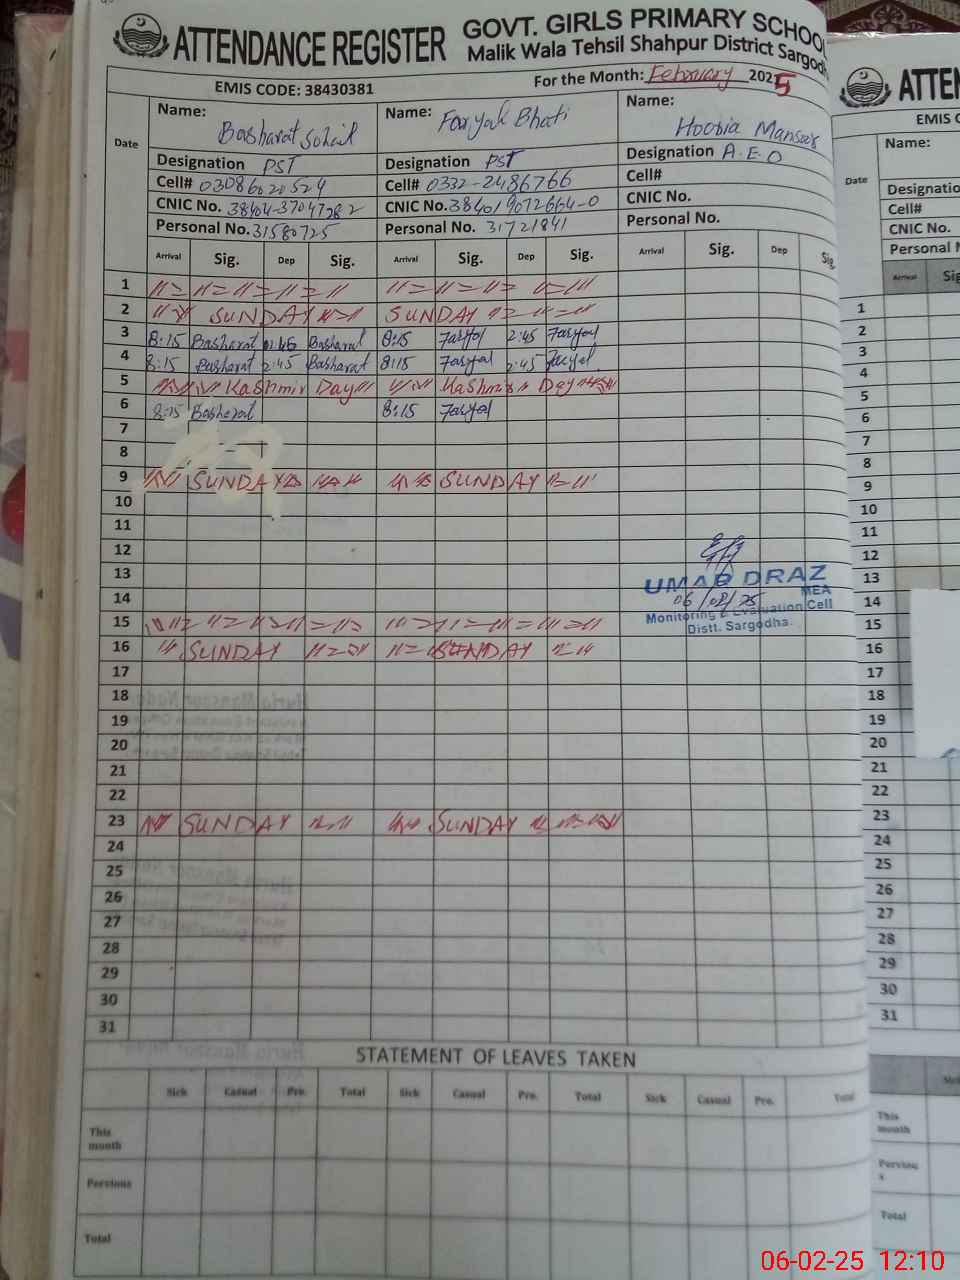 ATTENDANCE REGISTER
GOVT. GIRLS PRIMARY SCHOOL
Malik Wala Tehsil Shahpur District Sargodh
EMIS CODE: 38430381
For the Month: February 2025
Date
Name: Basharat Sohail
Name: Faryal Bhati
Name: Hoobia Mansoor
Designation PST
Designation PST
Designation A.E.O
Cell# 03086020524
Cell# 0332-2486766
Cell#
CNIC No. 38404-3704728 2
CNIC No. 384019072664-0
CNIC No.
Personal No. 31580725
Personal No. 31721841
Personal No.
Arrival Sig. Dep Sig. Arrival Sig. Dep Sig. Arrival Sig. Dep Sig.
1
2 SUNDAY SUNDAY
3 8:15 Basharat 2:45 Basharat 8:15 Faryal 2:45 Faryal
4 8:15 Basharat 2:45 Basharat 8:15 Faryal 2:45 Faryal
5 Kashmir Day Kashmir Day
6 8:15 Basharat 8:15 Faryal
7
8
9 SUNDAY SUNDAY
10
11
12
13
14
UMAR DRAZ
MEA
06/02/25
Monitoring & Evaluation Cell
Distt. Sargodha.
15
16 SUNDAY SUNDAY
17
18
19
20
21
22
23 SUNDAY SUNDAY
24
25
26
27
28
29
30
31
STATEMENT OF LEAVES TAKEN
Sick Casual Pre. Total Sick Casual Pre. Total Sick Casual Pre. Total
This month
Pervious
Total
ATTEN
EMIS C
Date
Name:
Designatio
Cell#
CNIC No.
Personal N
Arrival Sig
1
2
3
4
5
6
7
8
9
10
11
12
13
14
15
16
17
18
19
20
21
22
23
24
25
26
27
28
29
30
31
Sick
This month
Perviou s
Total
06-02-25 12:10